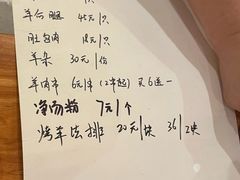 羊合腿 45元/只
肚包肉 18元/只
羊杂 30元/份
羊肉串 6元/串(2串起) 买6送一
净汤粉 7元/个
烤羊法排 20元/块 36/2块